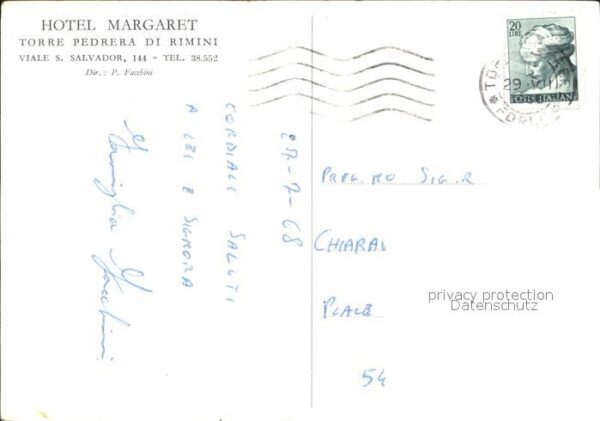 HOTEL MARGARET
TORRE PEDRERA DI RIMINI
VIALE S. SALVADOR, 144 - TEL. 38.552
Dir.: P. Facchini
27-7-68
CORDIALI SALUTI
A LEI E SIGNORA
Famiglia Facchini
20
LIRE
POSTE ITALIANE
29
FORLI
PREG.MO SIG.R
CHIARAI
PLACE
54
privacy protection
Datenschutz